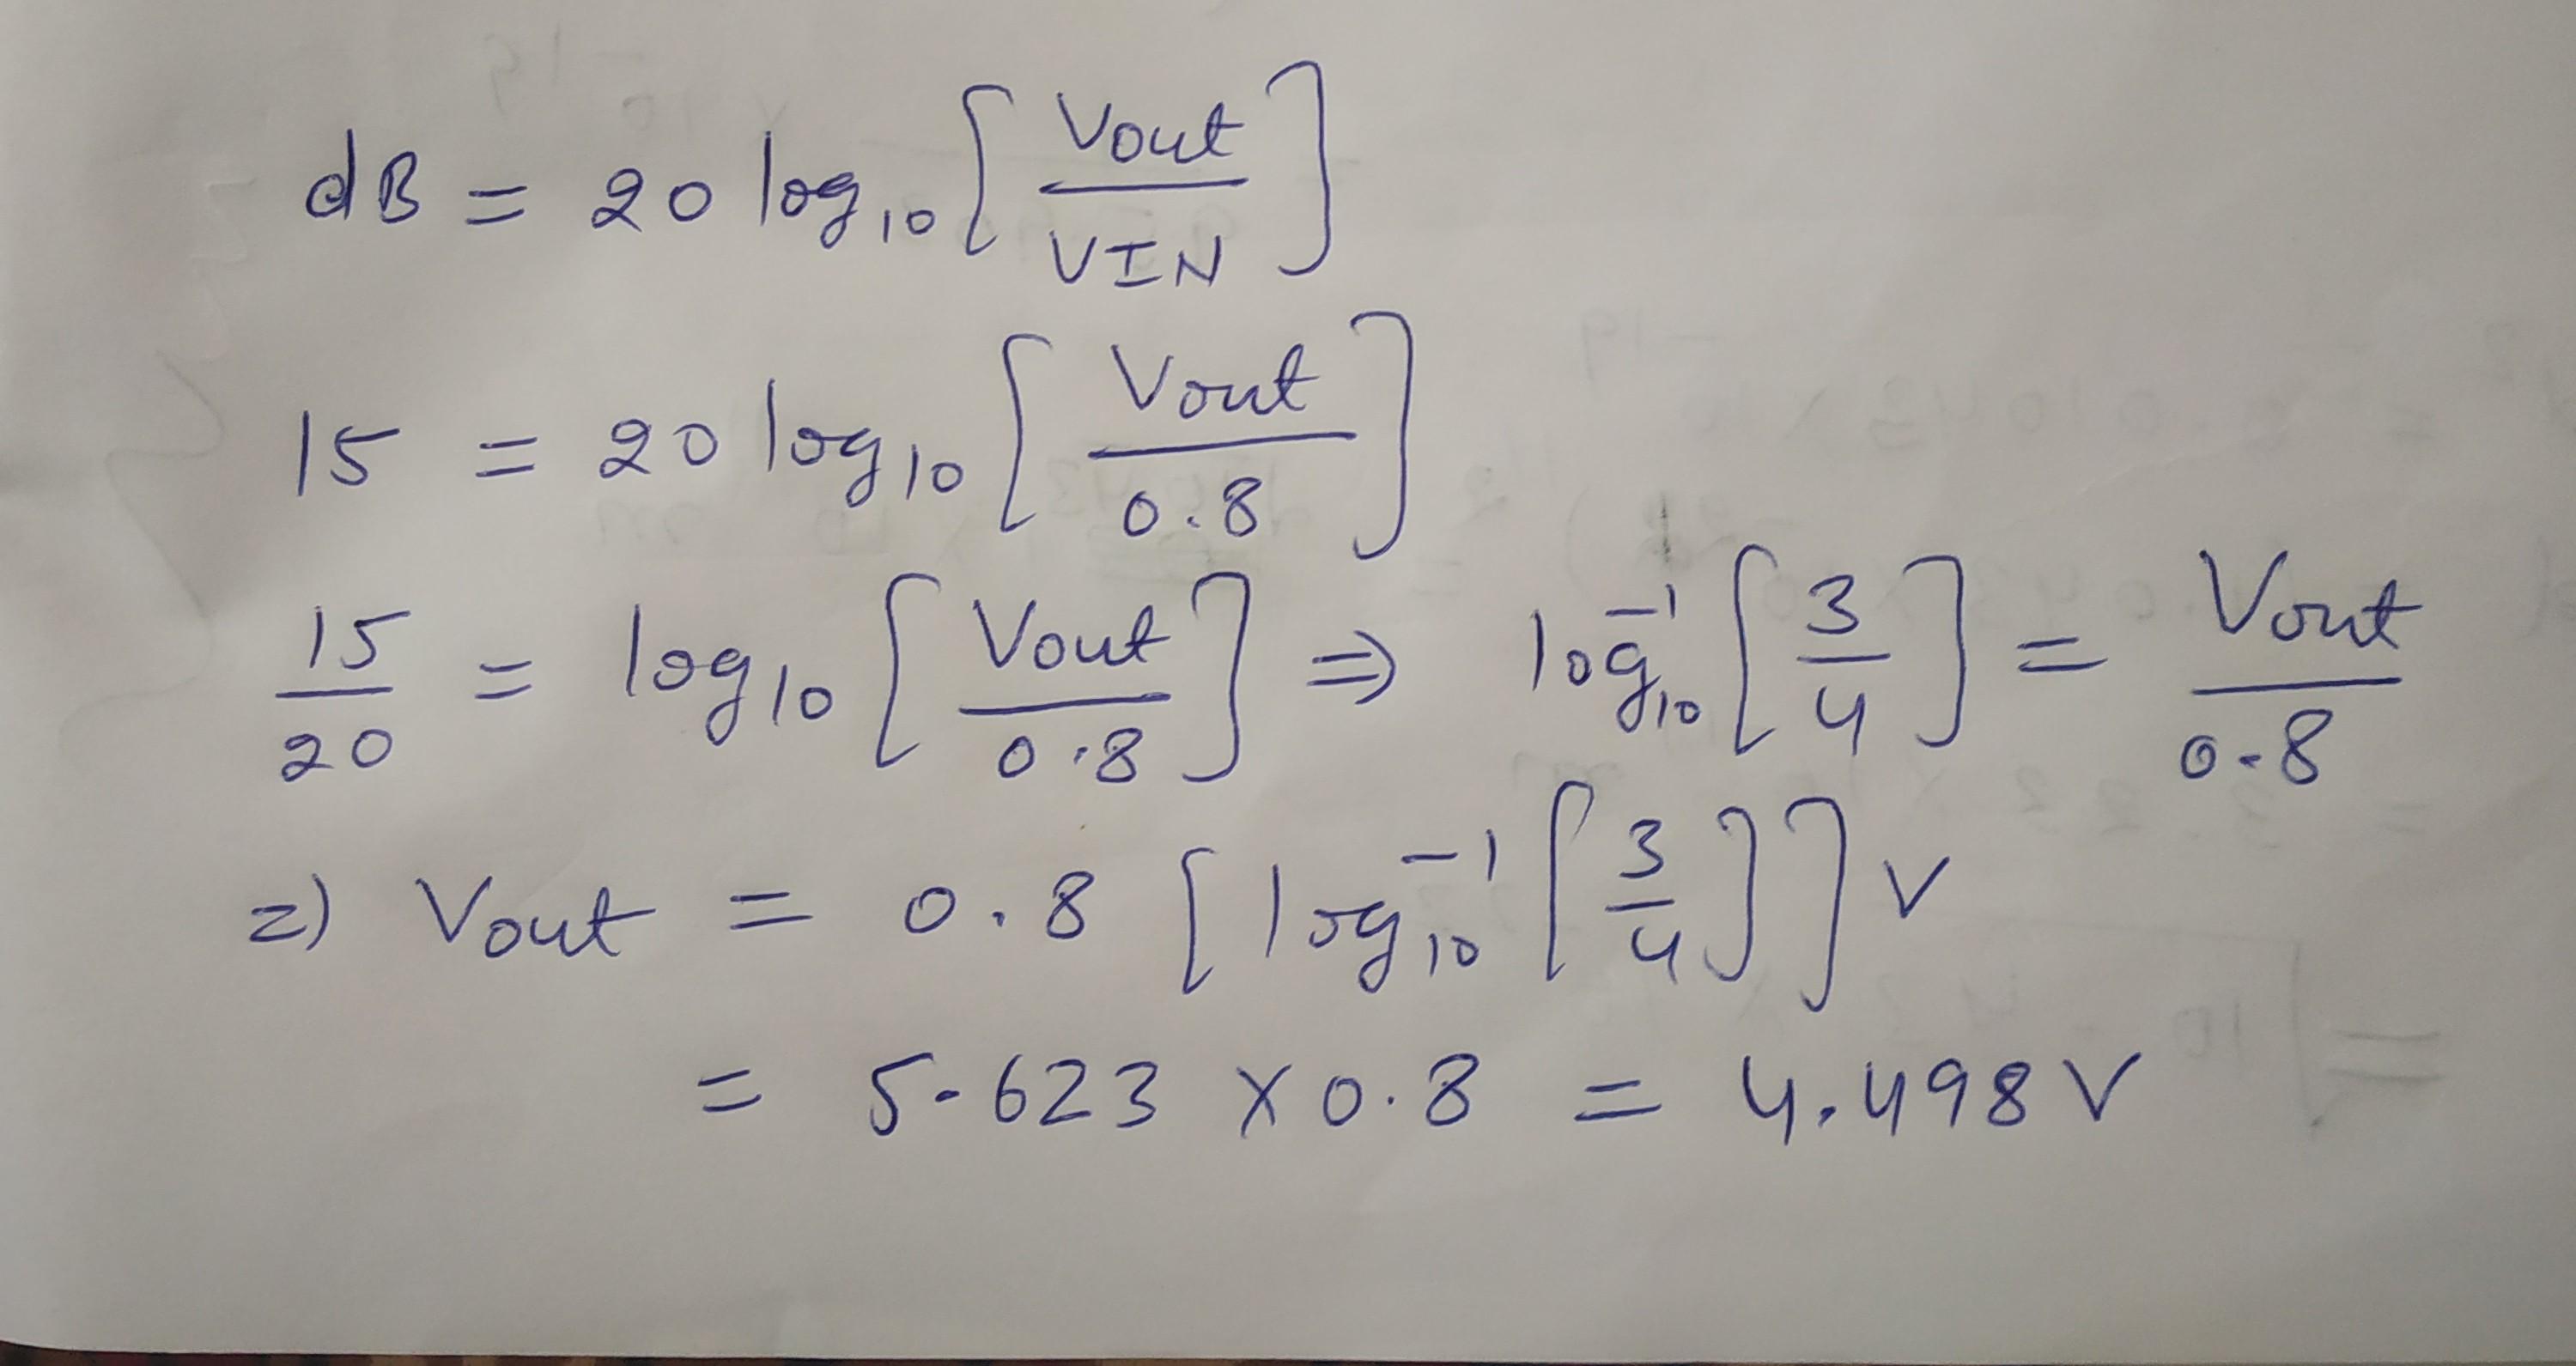 dB = 20 log₁₀ [Vout / VIN]
15 = 20 log₁₀ [Vout / 0.8]
15 / 20 = log₁₀ [Vout / 0.8] ⇒ log₁₀⁻¹ [3 / 4] = Vout / 0.8
⇒ Vout = 0.8 [log₁₀⁻¹ [3 / 4]] V
= 5.623 × 0.8 = 4.498 V